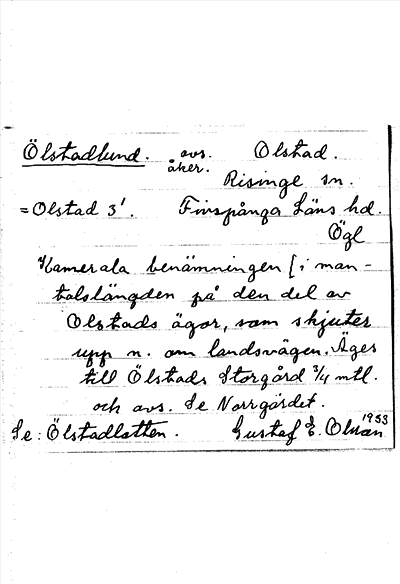 Ölstadlund. avs. åker. Olstad.
Risinge sn.
= Olstad 3¹. Finspånga Läns hd.
Ögl
Kamerala benämningen [i man-
talslängden på den del av
Olstads ägor, som skjuter
upp n. om landsvägen. Äges
till Ölstads Storgård 3/4 mtl.
och avs. Se Norrgärdet.
Se: Ölstadlotten. Gustaf E. Olman 1933